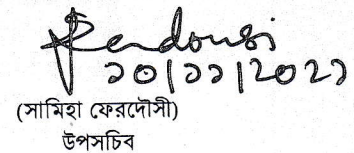 Ferdousi
১০|১১|২০২১
(সামিহা ফেরদৌসী)
উপসচিব